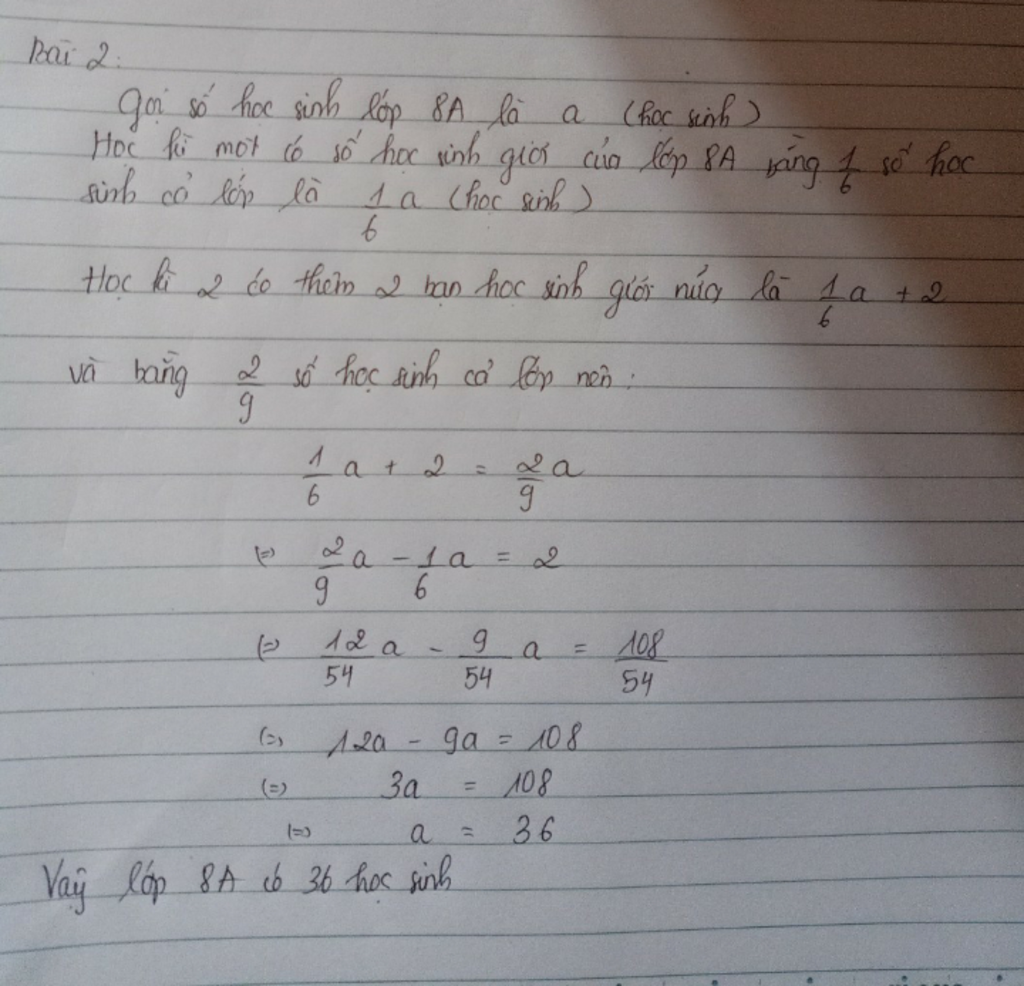 Bài 2:
Gọi số học sinh lớp 8A là a (học sinh)
Học kì một có số học sinh giỏi của lớp 8A bằng 1/6 số học
sinh cả lớp là 1/6 a (học sinh)
Học kì 2 có thêm 2 bạn học sinh giỏi nữa là 1/6 a + 2
và bằng 2/9 số học sinh cả lớp nên:
1/6 a + 2 = 2/9 a
(=) 2/9 a - 1/6 a = 2
(=) 12/54 a - 9/54 a = 108/54
(=) 12a - 9a = 108
(=) 3a = 108
(=) a = 36
Vậy lớp 8A có 36 học sinh